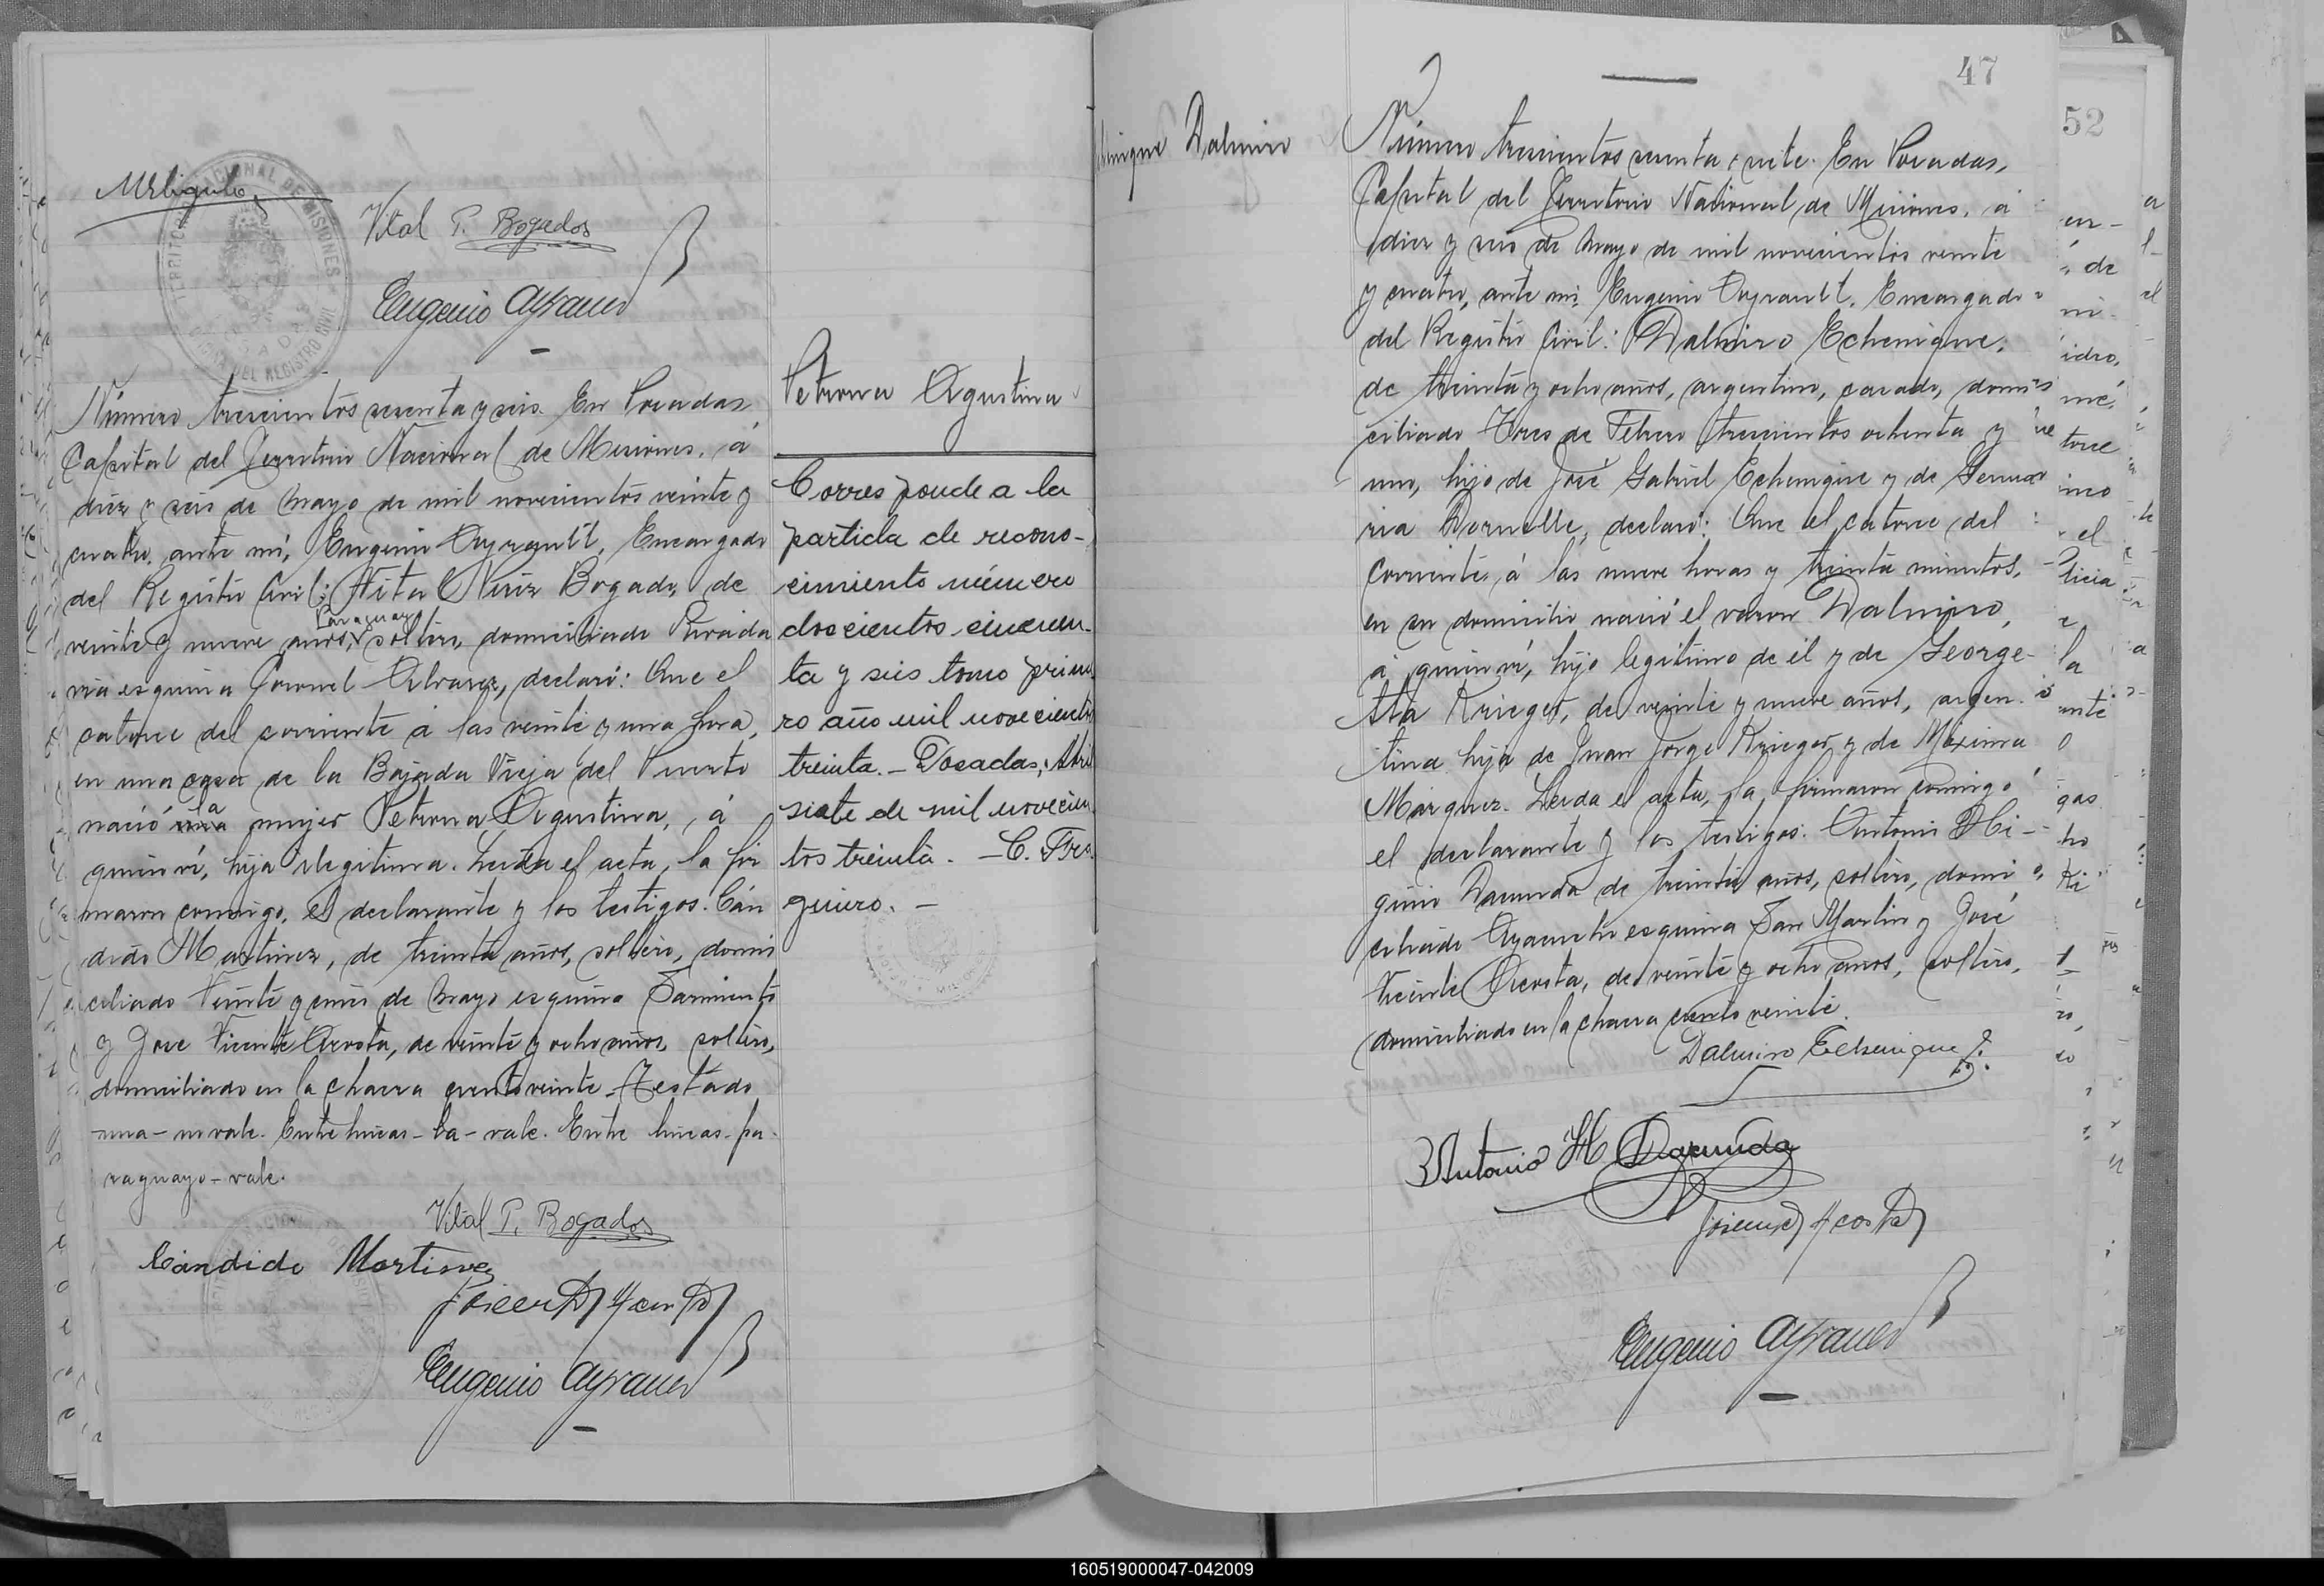 Vital P. Bogados
Eugenio Ayrault
Número trescientos sesenta y seis. En Posadas
Capital del Territorio Nacional de Misiones, á
diez y seis de Mayo de mil novecientos veinte y
cuatro, ante mí, Eugenio Ayrault, Encargado
del Registro Civil: Vital Bogado, de
veinte y nueve años, paraguayo, soltero, domiciliado Rivada
via esquina Coronel Alvarez, declaró: Que el
catorce del corriente á las veinte y una hora,
en una casa de la Bajada Vieja del Puerto
nació una la mujer Petrona Agustina, á
quien ví, hija ilegitima. Leida el acta, la fir
maron conmigo, el declarante y los testigos: Cán
dido Martinez, de treinta años, soltero, domi
ciliado Veinte y cinco de Mayo esquina Sarmiento
y José Vicente Acosta, de veinte y ocho años, soltero,
domiciliado en la chacra ciento veinte. Testado
una-no vale. Entre líneas-la-vale. Entre líneas-pa-
raguayo-vale.
Vital P. Bogados
Cándido Martinez
Eugenio Ayrault
Petrona Agustina
Corresponde a la
partida de recono-
cimiento número
doscientos cincuen-
ta y seis tomo prime
ro año mil novecientos
treinta.- Posadas, Abril
siete de mil novecien
tos treinta. -
47
Dalmiro
Número trescientos sesenta y siete. En Posadas,
Capital del Territorio Nacional de Misiones, á
diez y seis de Mayo de mil novecientos veinte
y cuatro, ante mí, Eugenio Ayrault, Encargado
del Registro Civil: Dalmiro Echenique,
de treinta y ocho años, argentino, casado, domi
ciliado Tres de Febrero trescientos ochenta y
uno, hijo de José Gabriel Echenique y de Genua
ria declaró: Que el catorce del
corriente, á las nueve horas y treinta minutos,
en su domicilio nació el varon Dalmiro,
á quien ví, hijo legítimo de él y de George-
tta Krieger, de veinte y nueve años, argen
tina, hija de Juan Jorge Krieger y de Máxima
Márquez. Leida el acta, la firmaron conmigo
el declarante y los testigos: Antonio Hi-
ginio Dacunda de treinta años, soltero, domi
ciliado Ayacucho esquina San Martin y José
Vicente Acosta, de veinte y ocho años, soltero,
domiciliado en la chacra ciento veinte.
Dalmiro Echenique
Antonio H Dacunda
Eugenio Ayrault
52
160519000047-042009